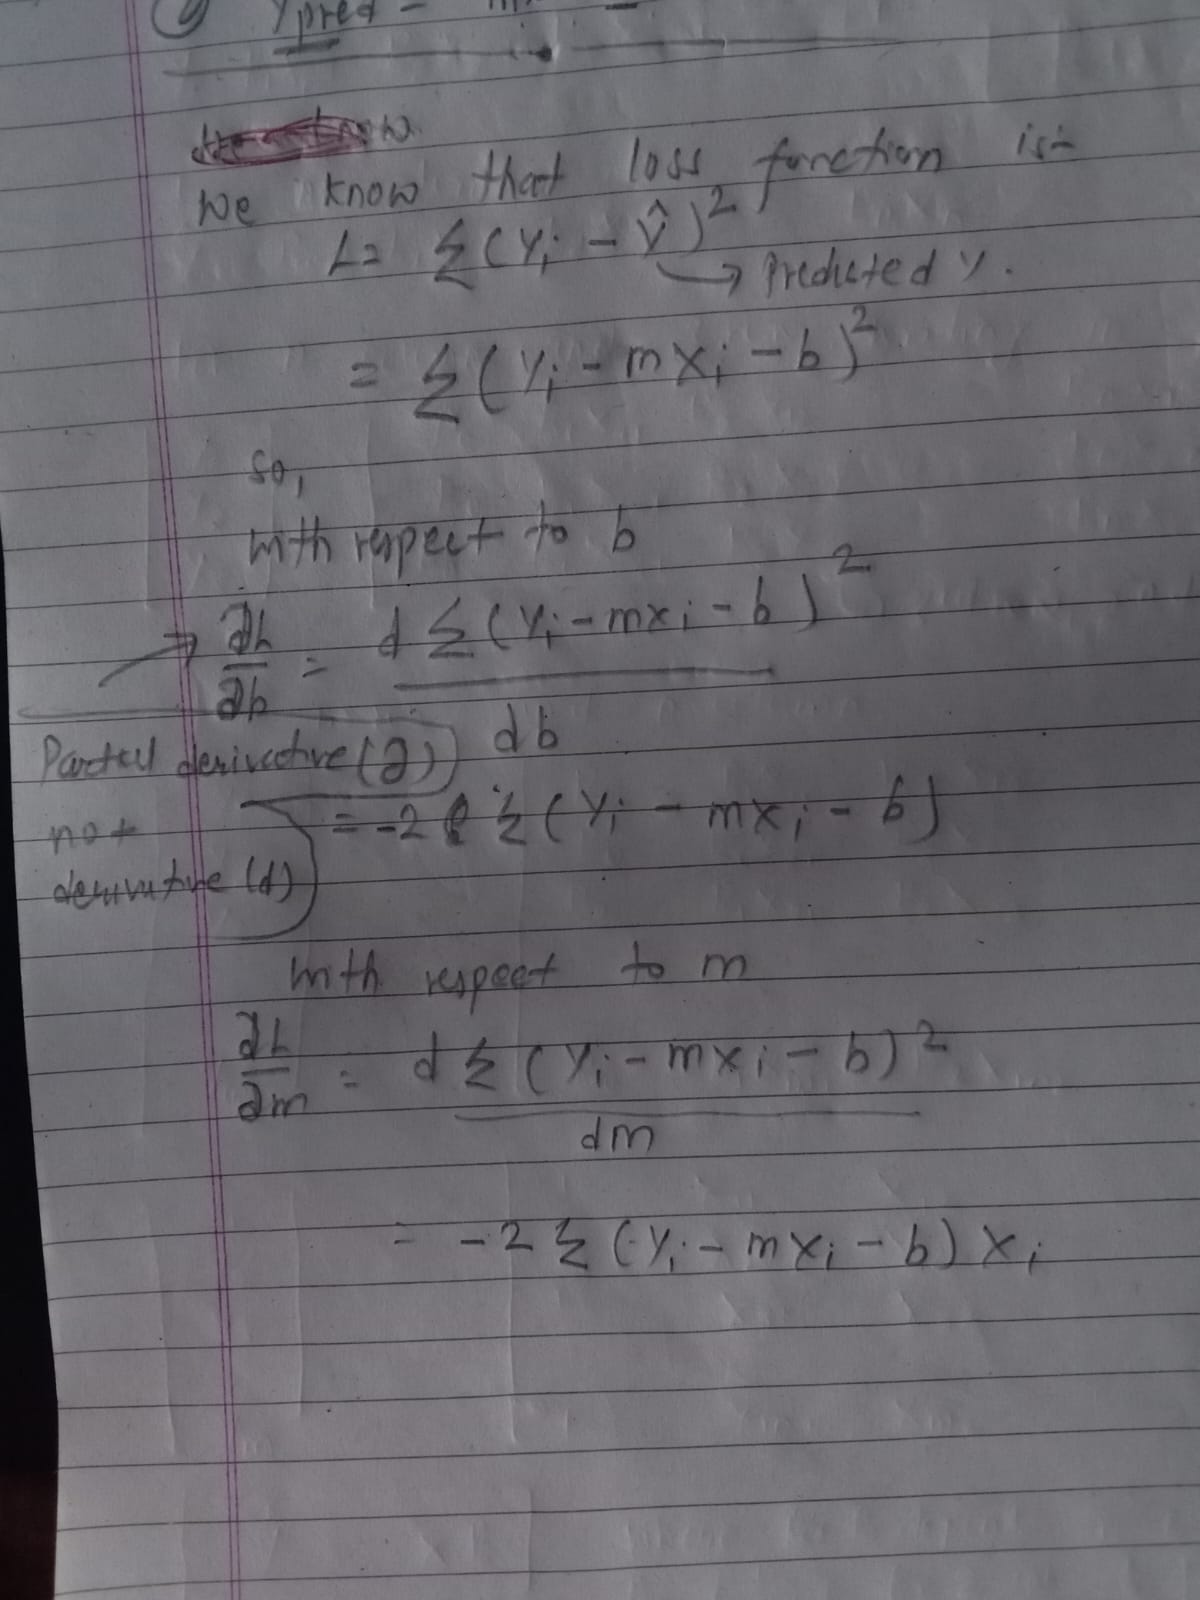 Ypred =
We know that loss function is:-
L= Σ(Yi - Ŷ)²
→ Predicted Y.
= Σ(Yi - mxi - b)²
so,
with respect to b
→ ∂L/∂b = d Σ(Yi - mxi - b)²/db
Partial derivative (∂)
not
derivative (d)
= -2 Σ(Yi - mxi - b)
with respect to m
∂L/∂m = d Σ(Yi - mxi - b)²/dm
= -2 Σ(Yi - mxi - b) xi